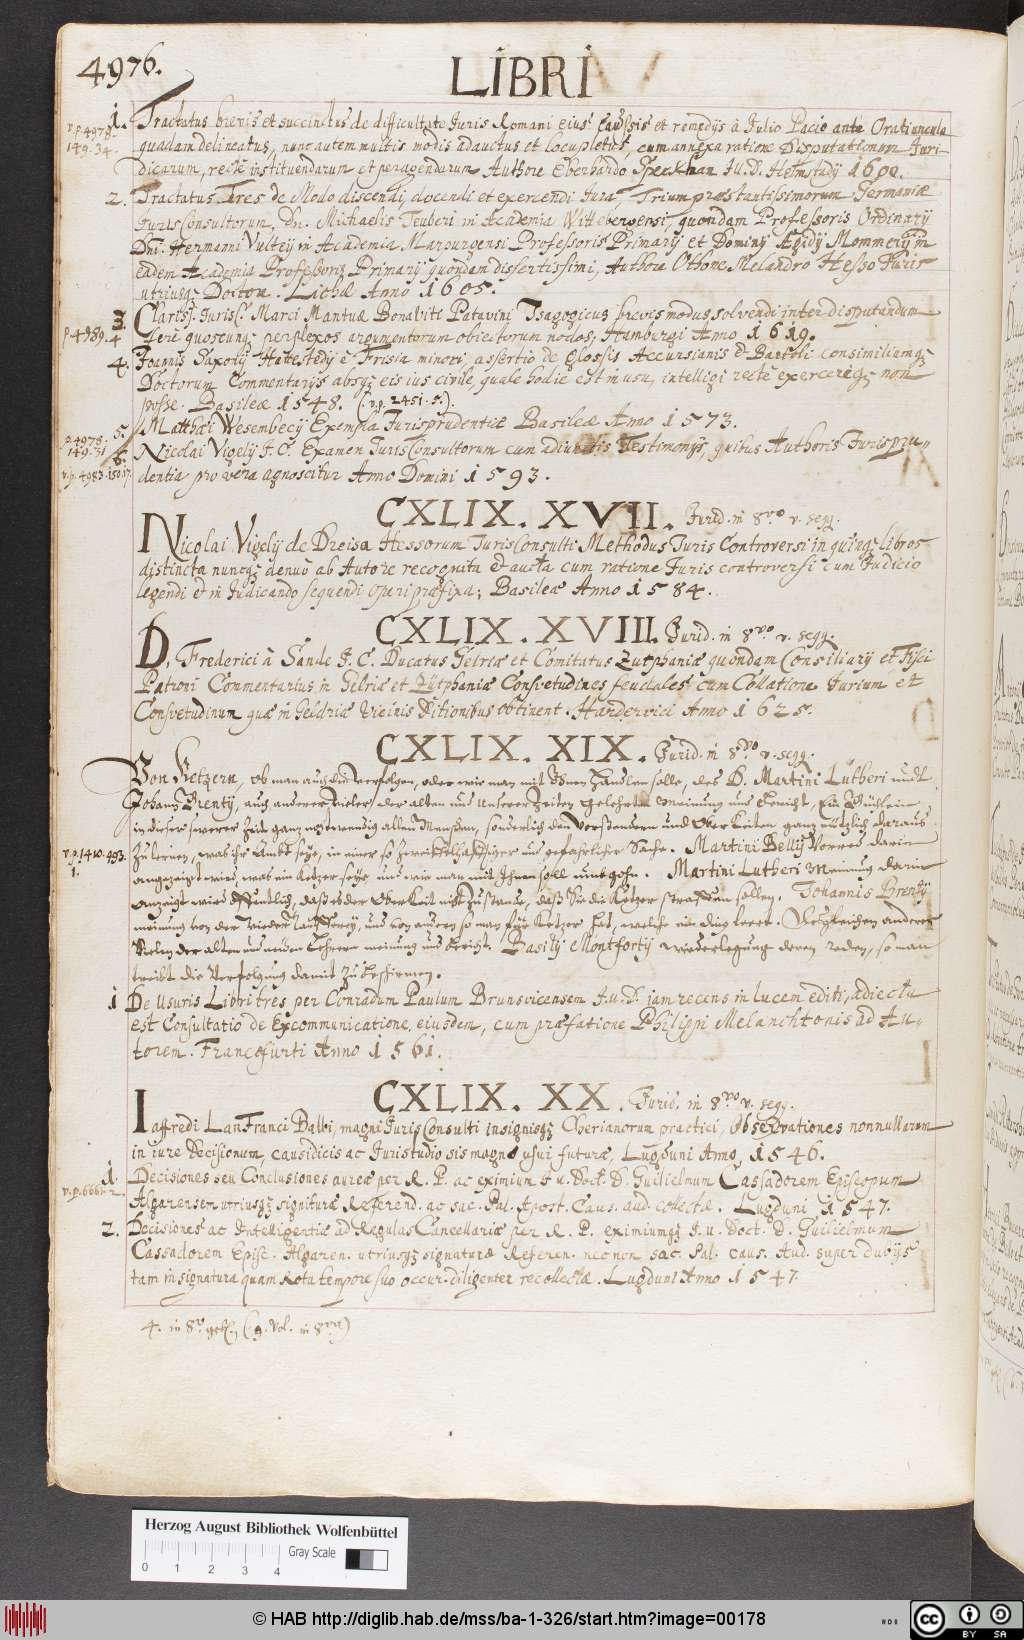 4976.
LIBRI
1. Tractatus brevis et succinctus de difficultate Juris Romani eius, caussis et remedijs à Julio Pacio ante Oratiuncula
v. p. 4978.
149. 34.
quadam delineatus, nunc autem multis modis adauctus et locupletius, cum annexa ratione Disputationum Juri-
dicarum, rectè instituendarum et peragendarum Authore Eberhardo Speckhan J.U.D. Helmstadij 1600.
2. Tractatus Tres de Modo discendi, docendi et exercendi Jura, Trium præstantissimorum Germaniæ
JurisConsultorum, Dn. Michaelis Teuberi in Academia Wittebergensi, quondam Professoris Ordinarij
Dni. Hermanni Vulteij in Academia Marpurgensi Professoris Primarij et Dominij Ægidij Mommerij in
eadem Academia Professoris Primarij quondam dissertissimi, Authore Othone Melandro Hesso Juris
utriusq; Doctore. Lichæ Anno 1605.
3. Clariss. Jurisc. Marci Mantuæ Bonaviti Patavini Isagogicus brevis modus solvendi inter disputandum
p. 4989. 4
ferè quoscunq; perplexos argumentorum obiectorum nodos, Hamburgi Anno 1619.
4. Joannis Saxonij Hattestedij è Frisia minori assertio de Glossis Accursianis & Bartoli consimiliumq;
Doctorum Commentarijs absq; eis ius civile, quale hodie est in usu, intelligi rectè exercerêq; non
posse. Basileæ 1548. (v. p. 2451. 5.)
5. Matthæi Wesembecij Exempla Jurisprudentiæ Basileæ Anno 1573.
p. 4978.
149. 31
6. Nicolai Vigelij J.C. Examen JurisConsultorum cum adiunctis Testimonijs, quibus Authoris Jurispru-
v. p. 4983. 150. 17.
dentia pro vera agnoscitur Anno Domini 1593.
CXLIX. XVII. Jurid. in 8vo v. seqq.
Nicolai Vigelij de Dreisa Hessorum JurisConsulti Methodus Juris Controversi in quinq; libros
distincta nuncq; denuò ab Autore recognita & aucta cum ratione Juris controversi cum Judicio
legendi et in Judicando sequendi operi præfixa; Basileæ Anno 1584.
CXLIX. XVIII. Jurid. in 8vo v. seqq.
D. Frederici à Sande J.C. Ducatus Gelriæ et Comitatus Zutphaniæ quondam Consiliarij et Fisci
Patroni Commentarius in Gelriæ et Zutphaniæ Consvetudines feudales cum Collatione Jurium et
Consvetudinum quæ in Geldriæ vicinis Ditionibus obtinent. Hardervici Anno 1625.
CXLIX. XIX. Jurid. in 8vo v. seqq.
Von Ketzern, ob man auch die verfolgen, oder wie man mit Ihnen handlen solle, des D. Martini Lutheri undt
Johann Brentij, auch anderer vieler der alten und Unserer Zeiten gelehrten meinung und Bericht, Ein Büchlein
in dieser schwerer Zeit ganz nothwendig allen Menschen, sonderlich den und Oberkeiten ganz nützlich daraus
v. p. 1410. 493.
1.
zu lernen, was ihr Ambt seye, in einer so und gefährlicher Sache. Martini Bellij Vorrede darin
angezeigt wird, was ein Ketzer seye und wie man mit Ihnen soll umbgehn. Martini Lutheri Meinung darin
anzeigt wird öffentlich, daß es der Oberkeit nicht zustande, daß Sie die Ketzer straffen sollen. Johannis Brentij
meinung von der wieder Taufferey, und von anderen so man für Ketzer hat, Dergleichen anderer
Vielen der alten und neuen Lehrern meinung und Bericht. Basilij Montfortij wiederlegung deren reden, so man
treibt die Verfolgung damit zu beschirmen.
1 De Usuris Libri tres per Conradum Paulum Brunsvicensem J.U.D. iam recens in lucem editi, adiecta
est Consultatio de Excommunicatione, eiusdem, cum præfatione Philippi Melanchtonis ad Au-
torem. Francofurti Anno 1561.
CXLIX. XX. Jurid. in 8vo v. seqq.
Iaffredi LanFranci Balbi, magni JurisConsulti insignisq; Cherianorum practici, Observationes nonnullarum
in iure Decisionum, causidicis ac Juristudiosis magno usui futuræ, Lugduni Anno, 1546.
1. Decisiones seu Conclusiones aureæ per R. P. ac eximium J. U. Doct. D. Guilielmum Cassadorem Episcopum
v. p. 6661. 2.
Algarensem utriusq; signituræ Referend. ac sac. Pal. Apost. Caus. aud. collectæ. Lugduni 1547.
2. Decisiones ac Intelligentiæ ad Regulas Cancellariæ per R. P. eximiumq; J. U. Doct. D. Guilielmum
Cassadorem Episc. Algaren. utriusq; signaturæ Referen. necnon sac. Pal. caus. Aud. super dubijs
tam in signatura quam Rota tempore suo occur. diligenter recollectæ. Lugduni Anno 1547.
4. in 8vo (9. Vol. in 8vo)
Herzog August Bibliothek Wolfenbüttel
Gray Scale
0 1 2 3 4
© HAB http://diglib.hab.de/mss/ba-1-326/start.htm?image=00178
CC BY SA